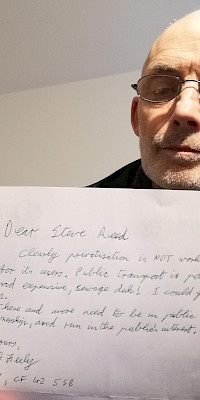 Dear Steve Reed
Clearly privatisation is NOT work
for its users. Public transport is po
and expensive, sewage dah! I could g
n.
hese and more need to be in public
nership, and run in the public's interest.
ours,
Freely
, CF42 5SB